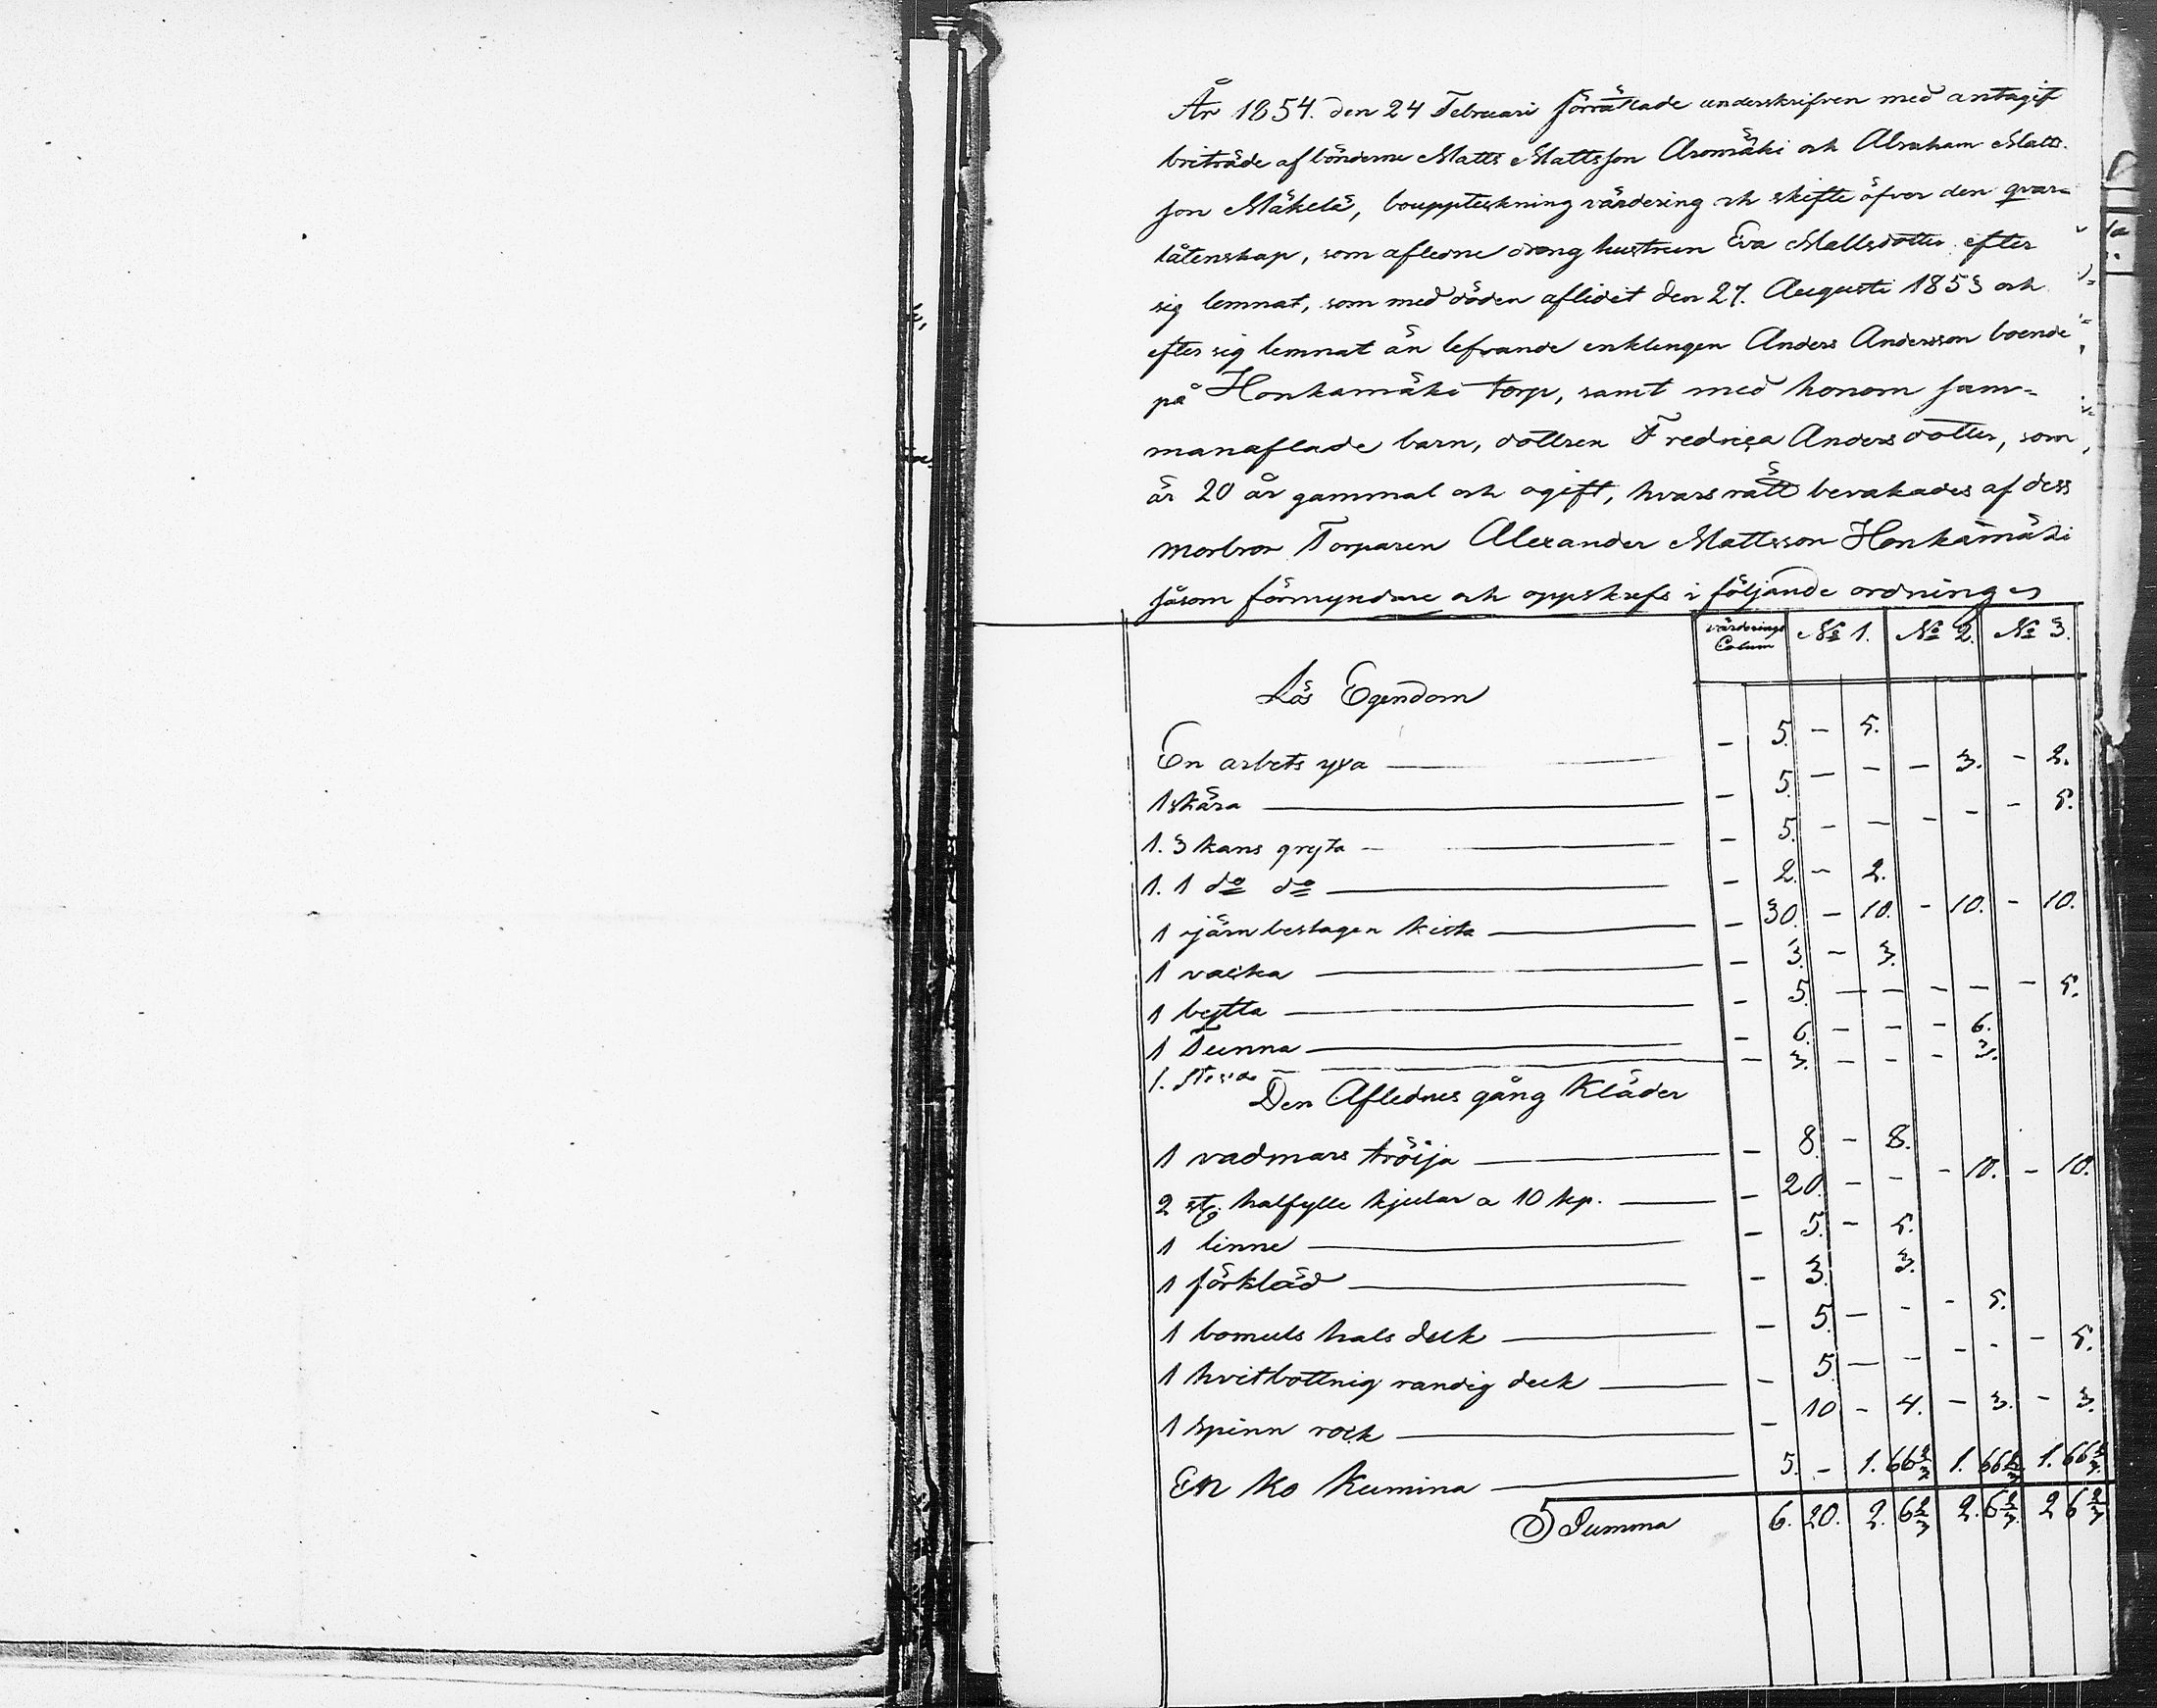 År 1854. den 24 Februari förrättade underskrifven med antagit
briträde af bönderne Matts Mattsson Aromäki och Abraham Matts-
son Mäkelä, bouppteckning värdering och skifte öfver den qvar-
låtenskap, som afledne dreng hustrun Eva Mattsdotter efter
sig lemnat, som med döden aflidit den 27. Augusti 1853 och
efter sig lemnat än lefvande enklingen Anders Andersson boende
på Honkamäki torp, samt med honom sam-
manaflade barn, dottren Fredrica Andersdotter, som
är 20 år gammal och ogift, hvars rätt bevakades af dess
morbror Torparen Alexander Mattsson Honkamäki
såsom förmyndare och oppskrefs i följande ordning
värderings Colum № 1. № 2. № 3.
Lös Egendom
En arbets yxa — – 5. – 5.
1 skära — – 5. – – – 3. – 2.
1. 3 kans gryta — – 5. – – – – – 5.
1. 1 do do — – 2. – 2.
1 järnbeslagen kista — – 30. – 10. – 10. – 10.
1 vacka — – 3. – 3.
1 bytta — – 5. – – – – – 5.
1 Tunna — – 6. – – – 6.
1. — – 3. – – – 3.
Den Aflednes gång Kläder
1 vadmars tröija — – 8. – 8.
2 st. halfylle kjular a 10 kp. — – 20. – – – 10. – 10.
1 linne — – 5. – 5.
1 förkläd — – 3. 3.
1 bomuls hals duk — – 5. – – – 5.
1 hvitbottnig randig duk — – 5 – – – – – 5.
1 spinn rock — – 10 – 4. – 3. – 3.
En ko Kumina — 5. – 1. 66 2/3 1. 66 2/3 1. 66 2/3
Summa 6. 20. 2. 6 2/3 2. 6 2/3 2 6 2/3